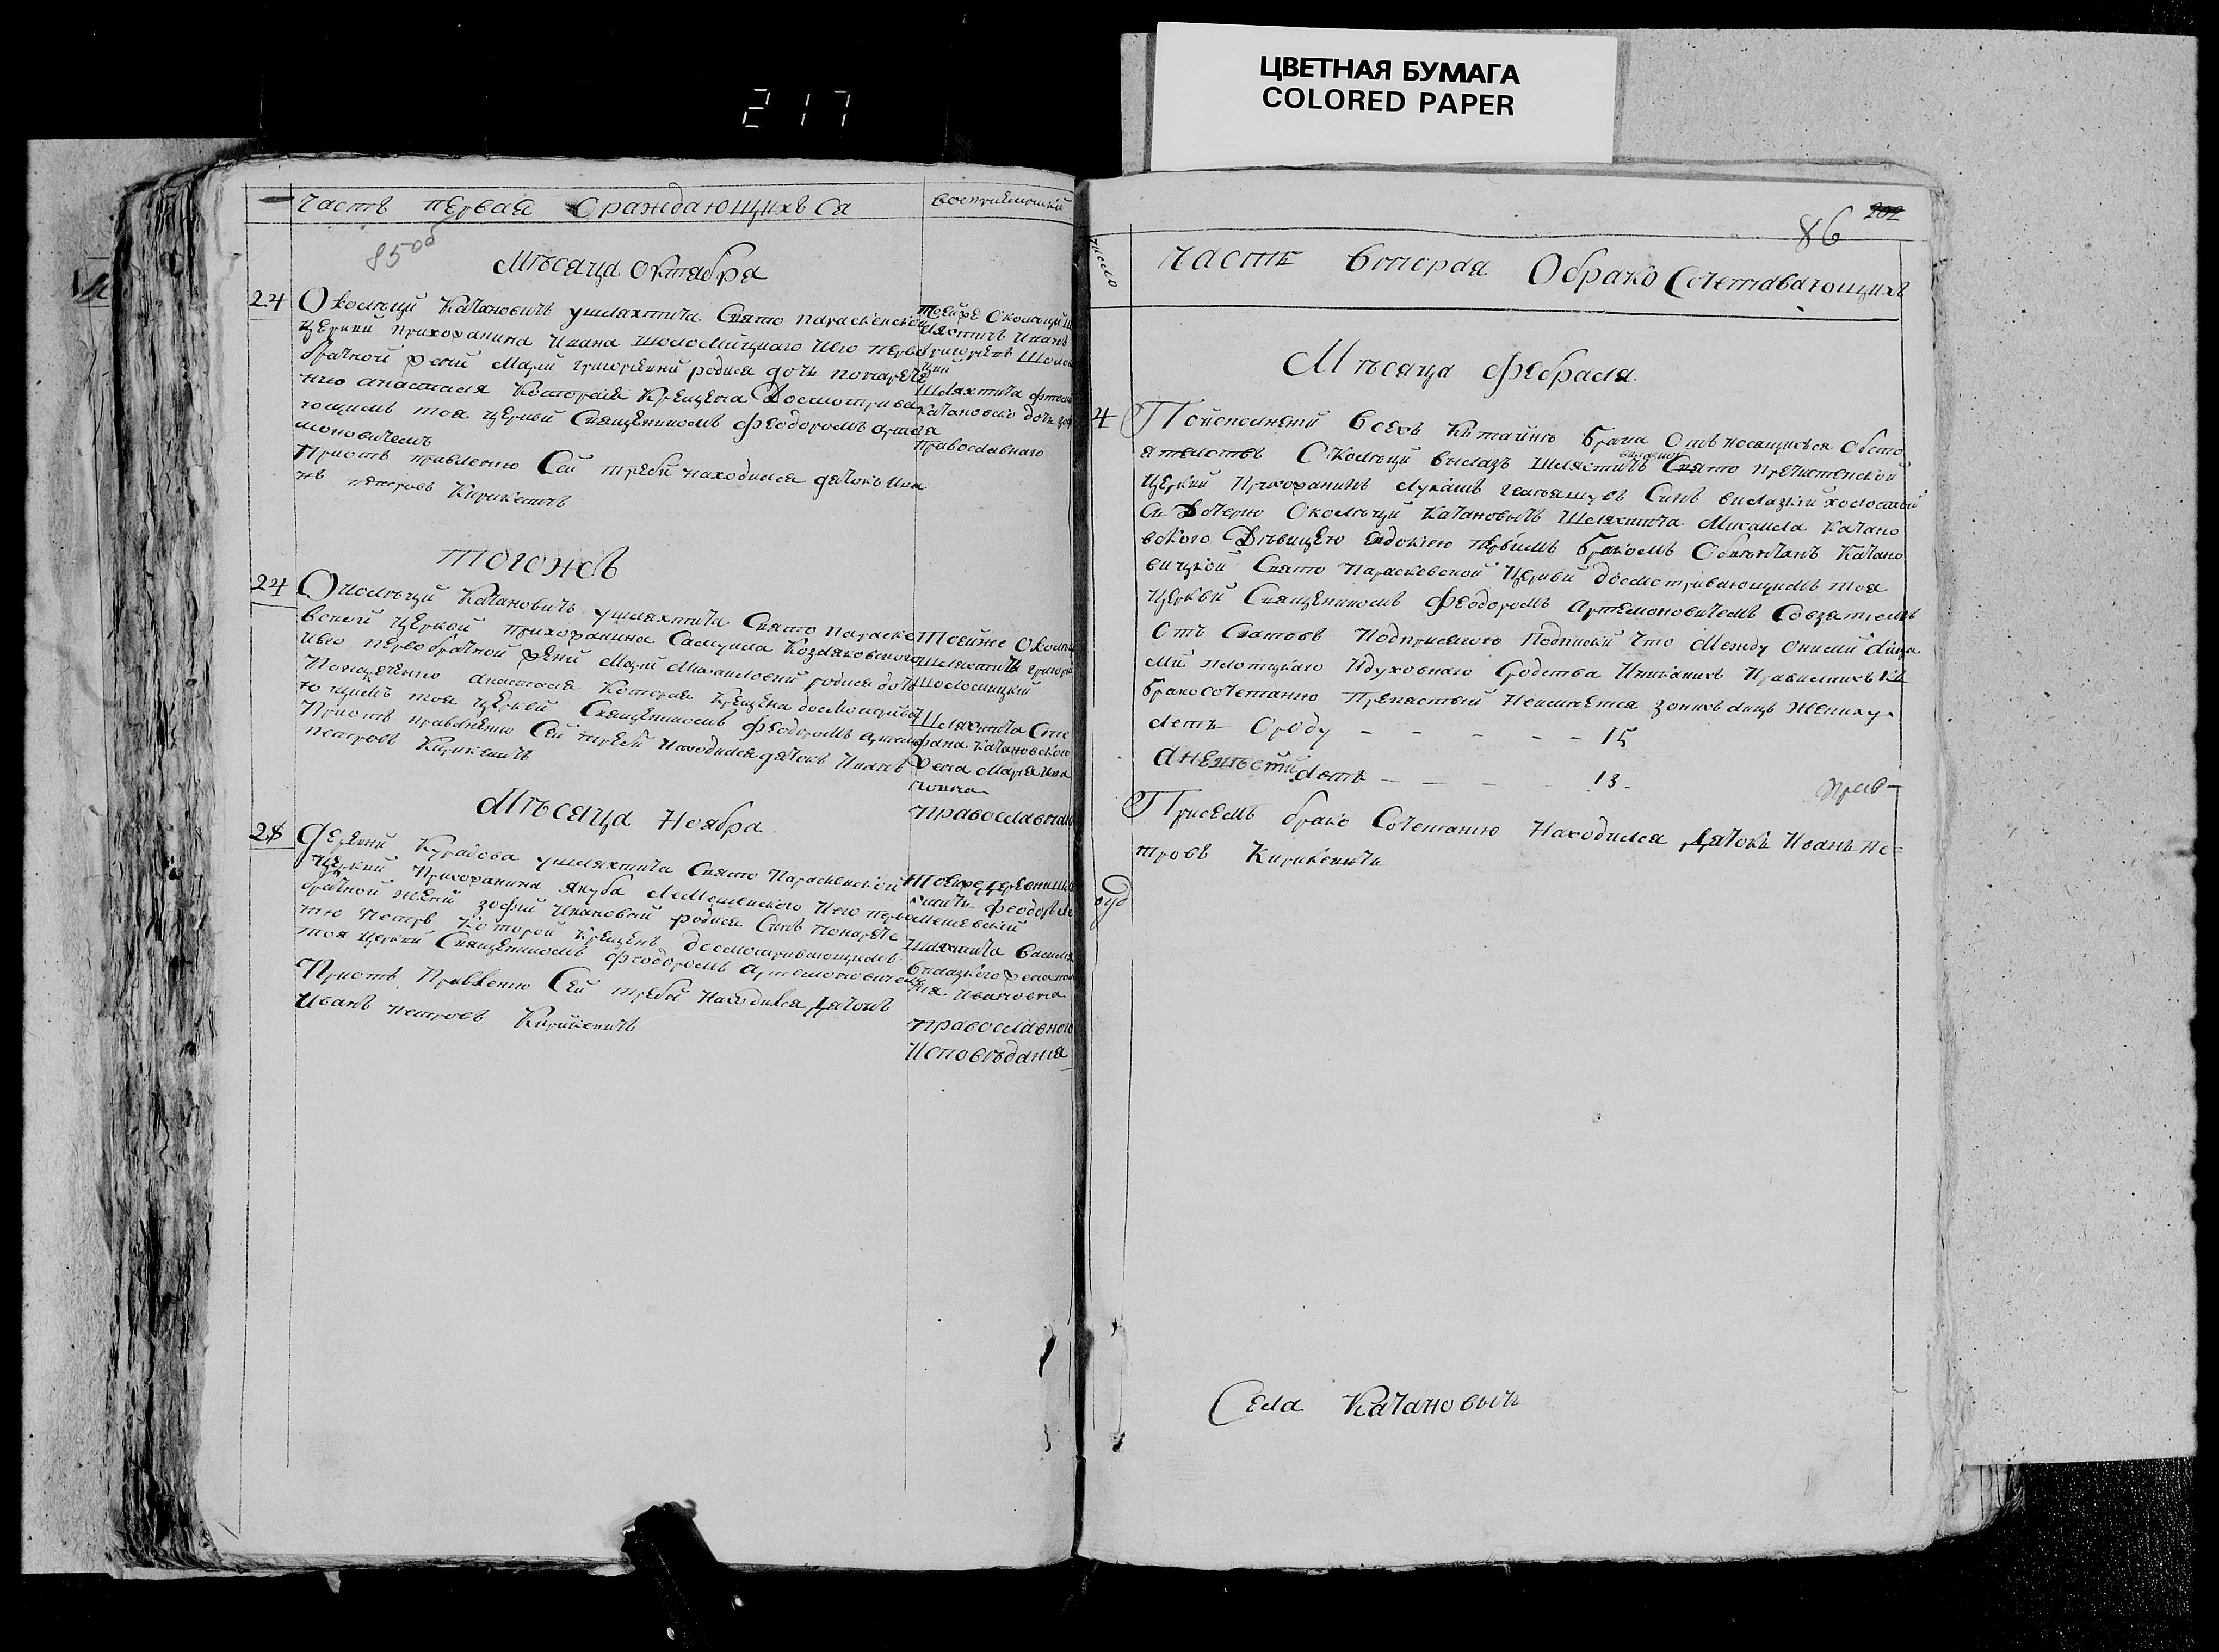 ЦВЕТНАЯ БУМАГА
COLORED PAPER
217
Часть первая Ораждающихъ Ся
восприемники
85об
Мѣсяца октября
24 Околицы Качановичъ у шляхтича Свято параскевской
церкви прихожанина Ивана Шоломицкаго Иего перво
брачной жены Марии григориевны родися дочь поименова
нию анастасия Которая Крещена Досмотрива
ющимъ тоя церкви Священникомъ феодоромъ арте
моновичемъ
Приотъ правлению Сей требы находился дячокъ Ива
нъ петровъ Кирикевичъ
тойже Околицы
шляхтичъ Иванъ
григориевъ Шоло
Шляхтича
Качановско дочь
Православнаго
Тогожъ
24 Околицы Качановичъ у шляхтича Свято параске
вской церкви прихожанина Самуила Козляковского
Иего первобрачной жены Марии Михаиловны родися дочь
анастасия Которая Крещена досмотрива
ющимъ тоя церкви Священникомъ феодоромъ артемо
Приотъ правлению Сей требы Находился дячокъ Иванъ
петровъ Кирикевичъ
Тойже Околицы
шляхтичъ григорий
Шоломицкий
Шляхтича Сте
фана Качановского
жена Мария Ива
новна
православнаго
Мѣсяца Ноября
28 деревни Курадова у шляхтича Свято Параскевской
церкви Прихожанина Якуба Лемешевского Иего перво
брачной жены зофии Ивановны родися Сынъ
петръ Которой Крещенъ досмотривающимъ
тоя церкви Священникомъ феодоромъ артемоновичемъ
Приотъ Правлению Сей требы Находился Дячокъ
Иванъ петровъ Кирикевичъ
Тойже деревни
феодоръ Ле
мешевский
Шляхтича Василия
Вылазкого жена
Ивановна
православного
Исповѣдания
86 202
число
часть вторая Обрако Сочетавающихъ
Мѣсяца февраля.
4 Поисполнении Всехъ Ктайнѣ брака Относящихся Обсто
ятелствъ Околицы вылазъ Шляхтичъ Свято пречистенской
церкви Прихожанинъ Лукашъ Сынъ вылазкий холостый
Съ Дочерью Околицы Качановычъ Шляхтича Михаила Качано
вского Дѣвицею евдокиею первымъ бракомъ Обвѣнчанъ Качано
вицкой Свято Параскевской Церкви досмотривающимъ тоя
церкви Священникомъ феодоромъ артемоновичемъ Совзятиемъ
Отъ Сватовъ Подприсягою Подписки Что Между Оными лица
ми плотцкаго Идуховнаго Сродства Иникакихъ Правилныхъ Къ
бракосочетанию Препятствий Неимѣется Жениху
летъ Ороду - - - - - 15
аневѣсти летъ - - - 13.
Присемъ брако Сочетанию Находился Дячокъ Иванъ Пе=
тровъ Кирикевичъ
Села Качановичъ